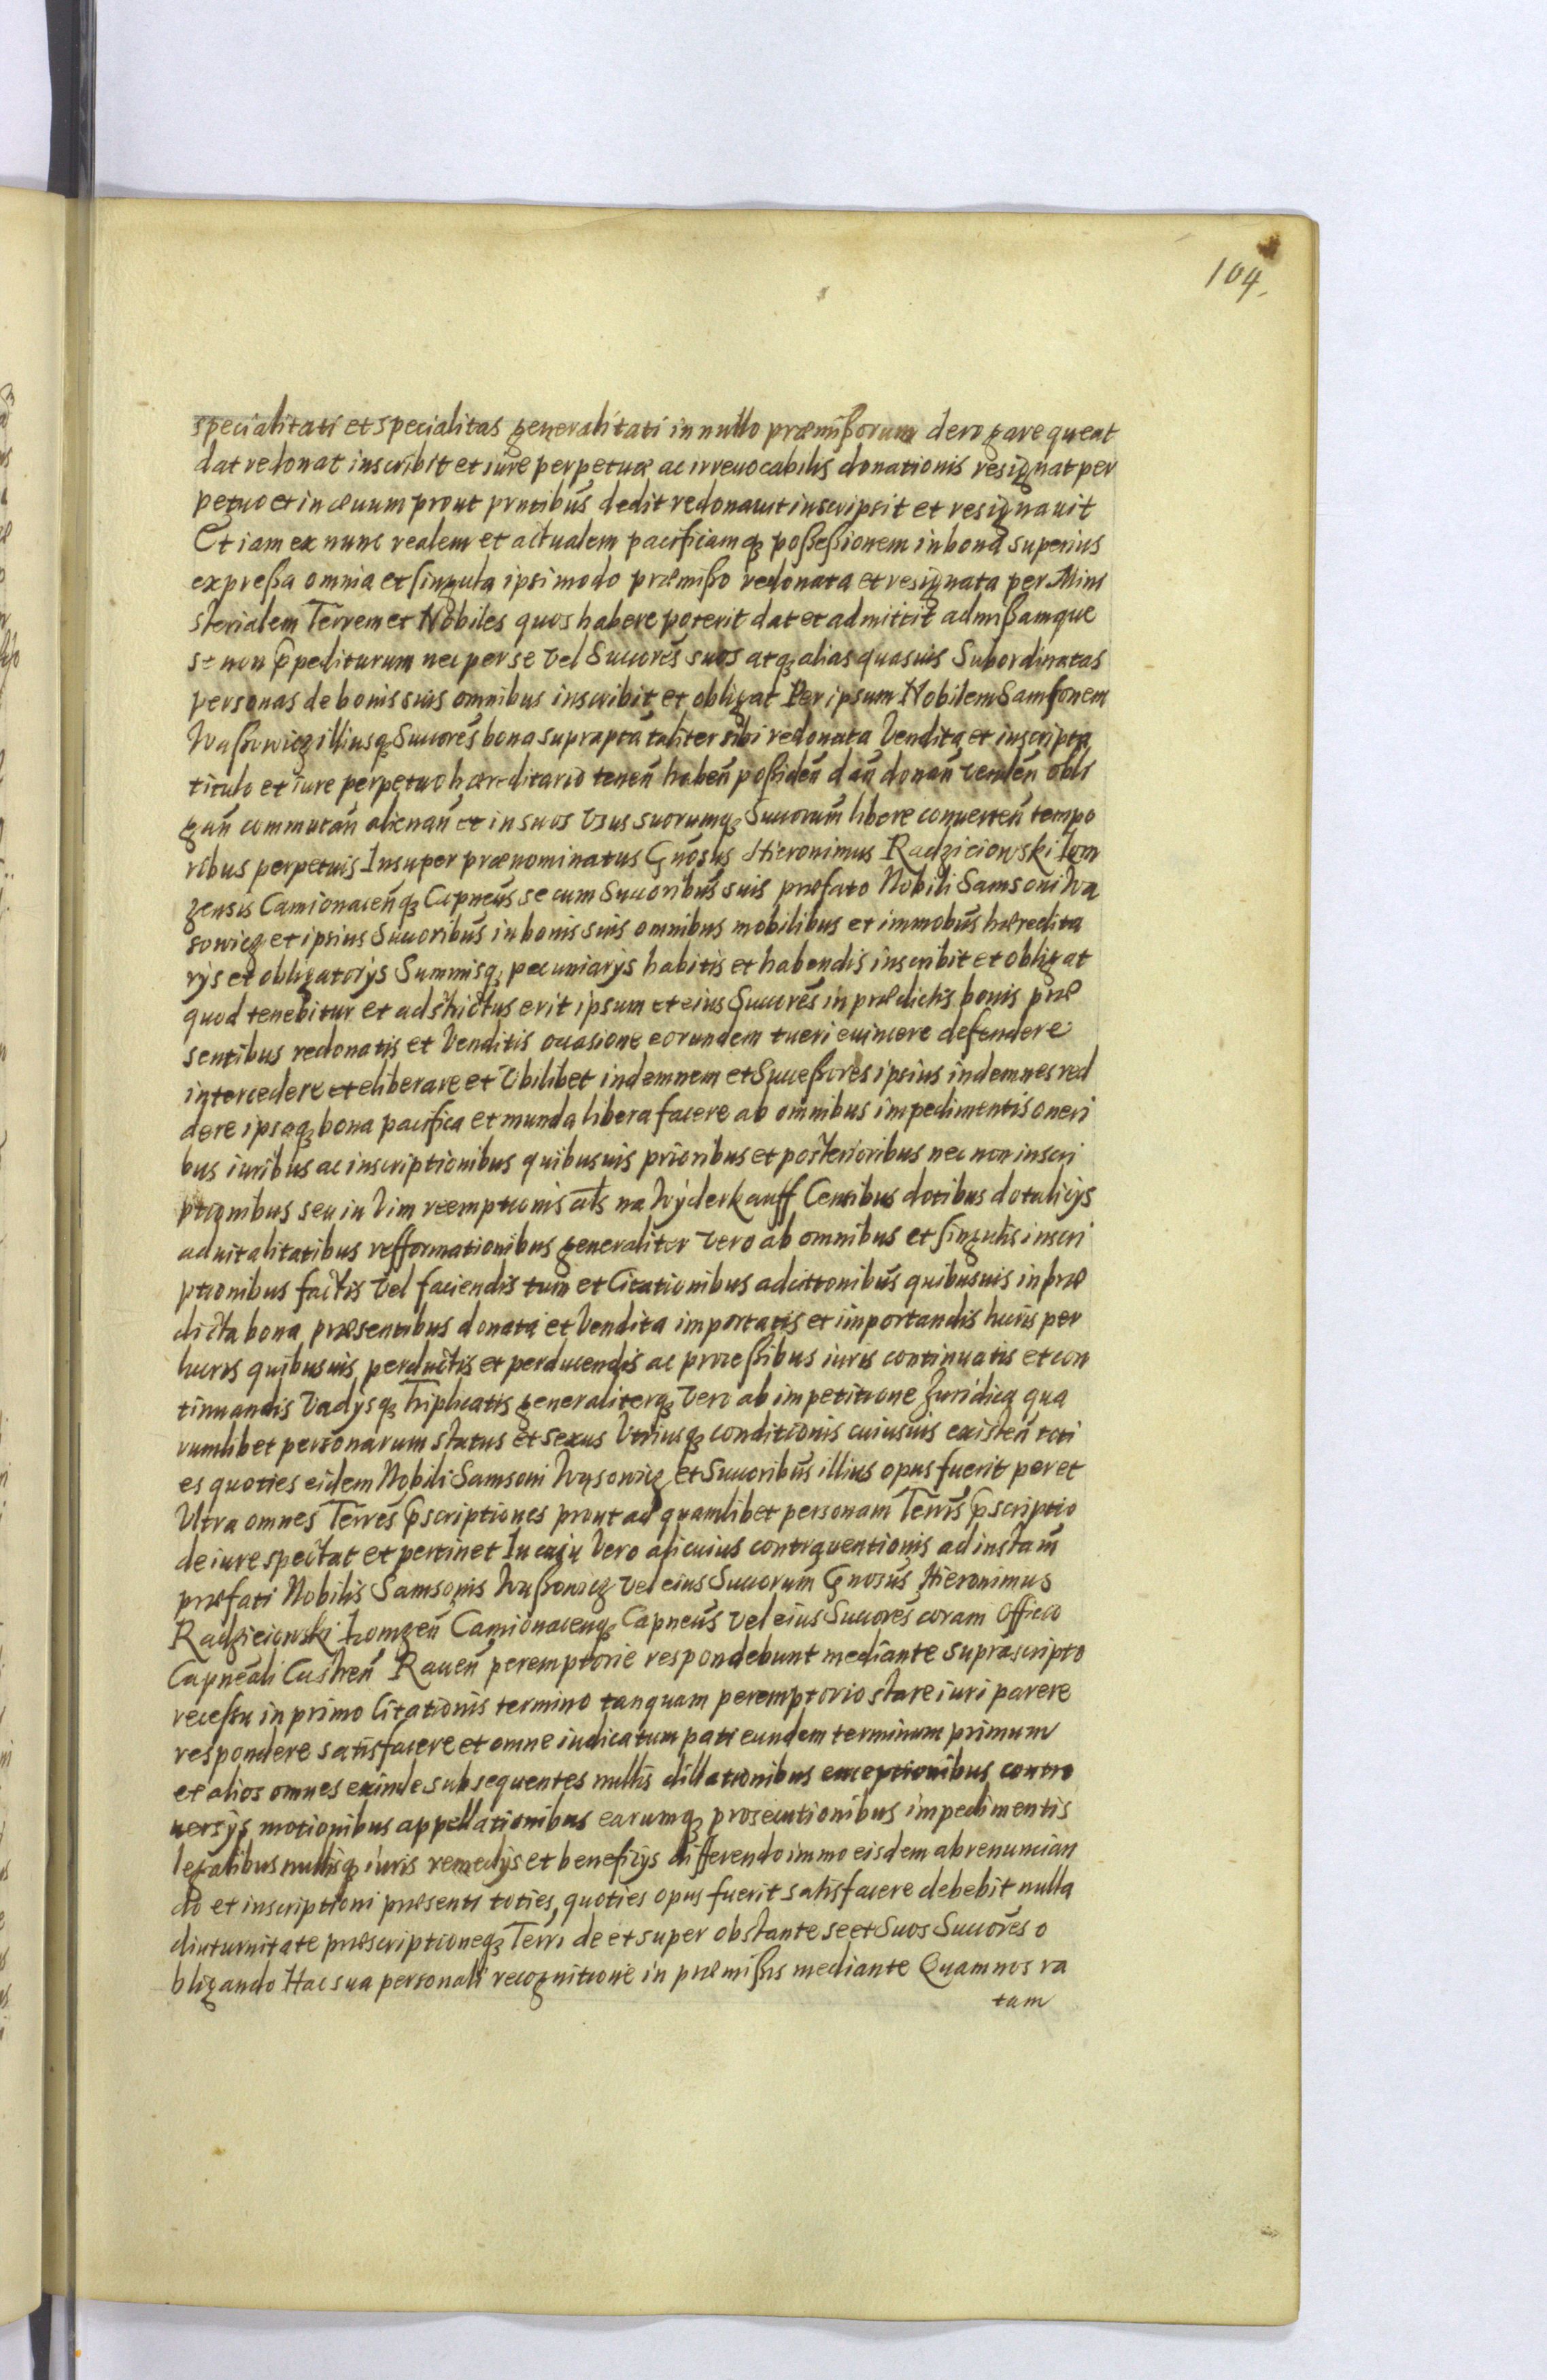 104.
specialitati et specialitas generalitati in nullo præmißorum derogare queat
dat redonat inscribit et iure perpetuæ ac irreuocabilis donationis resignat per
petuo et in æuum prout pntibus dedit redonauit inscripsit et resignauit
Et iam ex nunc realem et actualem pacificamq₃ poßeßionem in bona superius
expreßa omnia et singula ipsi modo præmißo redonata et resignata per Mini
sterialem Terrem et Nobiles quos habere poterit dat et admittit admißamque
se non ꝑpediturum nec per se vel Succorēs suos atq₃ alias quasuis Subordinatas
personas de bonis suis omnibus inscribit et obligat Per ipsum Nobilem Samsonem
Wąßowicz illiusq₃ Succorēs bona suprapta taliter sibi redonata Vendita et inscripta
titulo et iure perpetuo hæreditario tenen̄ haben̄ poßiden̄ dan̄ donan̄ venden̄ obli
gan̄ commutan̄ alienan̄ et in suos Vsus suorumq₃ Succorum̄ libere conuerten̄ tempo
ribus perpetuis Insuper prænominatus Gnōsus Hieronimus Radzieiowski Lom
zensis Camionacen̄q₃ Capneūs se cum Succoribus̄ suis præfato Nobili Samsoni Wą
sowicz et ipsius Succoribus̄ in bonis suis omnibus mobilibus et immobus̄ hæredita
rys et obligatorys Summisq₃ pecuniarys habitis et habendis inscribit et obligat
quod tenebitur et adstrictus erit ipsum et eius Succorēs in prædictis bonis præ
sentibus redonatis et Venditis occasione eorundem tueri euincere defendere
intercedere et eliberare et Vbilibet indemnem et Succeßores ipsius indemnes red
dere ipsaq₃ bona pacifica et munda libera facere ab omnibus impedimentis oneri
bus iuribus ac inscriptionibus quibusuis prioribus et posterioribus nec non inscri
ptionibus seu in Vim reemptionis als na Wyderkauff Censibus dotibus dotalicys
aduitalitatibus refformationibus generaliter vero ab omnibus et singulis inscri
ptionibus factis vel faciendis tum et Citationibus adcitationibus̄ quibusuis in præ
dicta bona præsentibus donata et Vendita importatis et importandis lucris per
lucros quibusuis perductis et perducendis ac proceßibus iuris continuatis et con
tinuandis Vadysq₃ Triplicatis generaliterq₃ vero ab impetitione Juridica qua
rumlibet personarum status et sexus Vtriusq₃ conditionis cuiusuis existen̄ toti
es quoties eidem Nobili Samsoni Wąsowicz et Succoribus̄ illius opus fuerit per et
Vltra omnes Terrēs ꝑscriptiones prout ad quamlibet personam Terrīs ꝑscriptio
de iure spectat et pertinet In casu Vero alicuius contrauentionis ad instam̄
præfati Nobilis Samsonis Wąßowicz vel eius Succorum̄ Gnosus̄ Hieronimus
Radzieiowski Łomzen̄ Camionacenq₃ Capneūs vel eius Succorēs coram Officio
Capneāli Castren̄ Rauen̄ peremptorie respondebunt mediante suprascripto
recessu in primo Citationis termino tanquam peremptorio stare iuri parere
respondere satisfacere et omne iudicatum pati eundem terminum primum
et alios omnes exinde subsequentes nullis dillationibus exceptionibus contro
uersys motionibus appellationibus earumq₃ prosecutionibus impedimentis
legalibus nullisq₃ iuris remedys et beneficys differendo immo eisdem abrenuncian
do et inscriptioni præsenti toties, quoties opus fuerit satisfacere debebit nulla
diuturnitate præscriptioneq₃ Terri de et super obstante se et Suos Succorēs o
bligando Hac sua personali recognitione in præmißis mediante Quam nos ra
tam